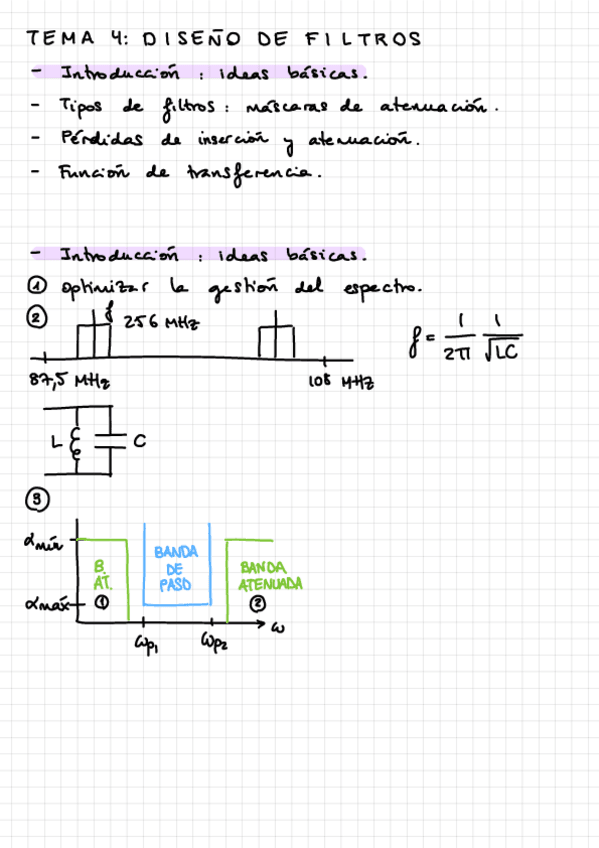 TEMA 4: DISEÑO DE FILTROS
- Introducción : ideas básicas.
- Tipos de filtros : máscaras de atenuación.
- Pérdidas de inserción y atenuación.
- Función de transferencia.
- Introducción : ideas básicas.
① Optimizar la gestión del espectro.
② f 256 MHz
f = 1/2π 1/√LC
87,5 MHz 108 MHz
L C
③
αmín
BANDA DE PASO
B. AT. ①
BANDA ATENUADA ②
αmáx
ω
ωp1 ωp2